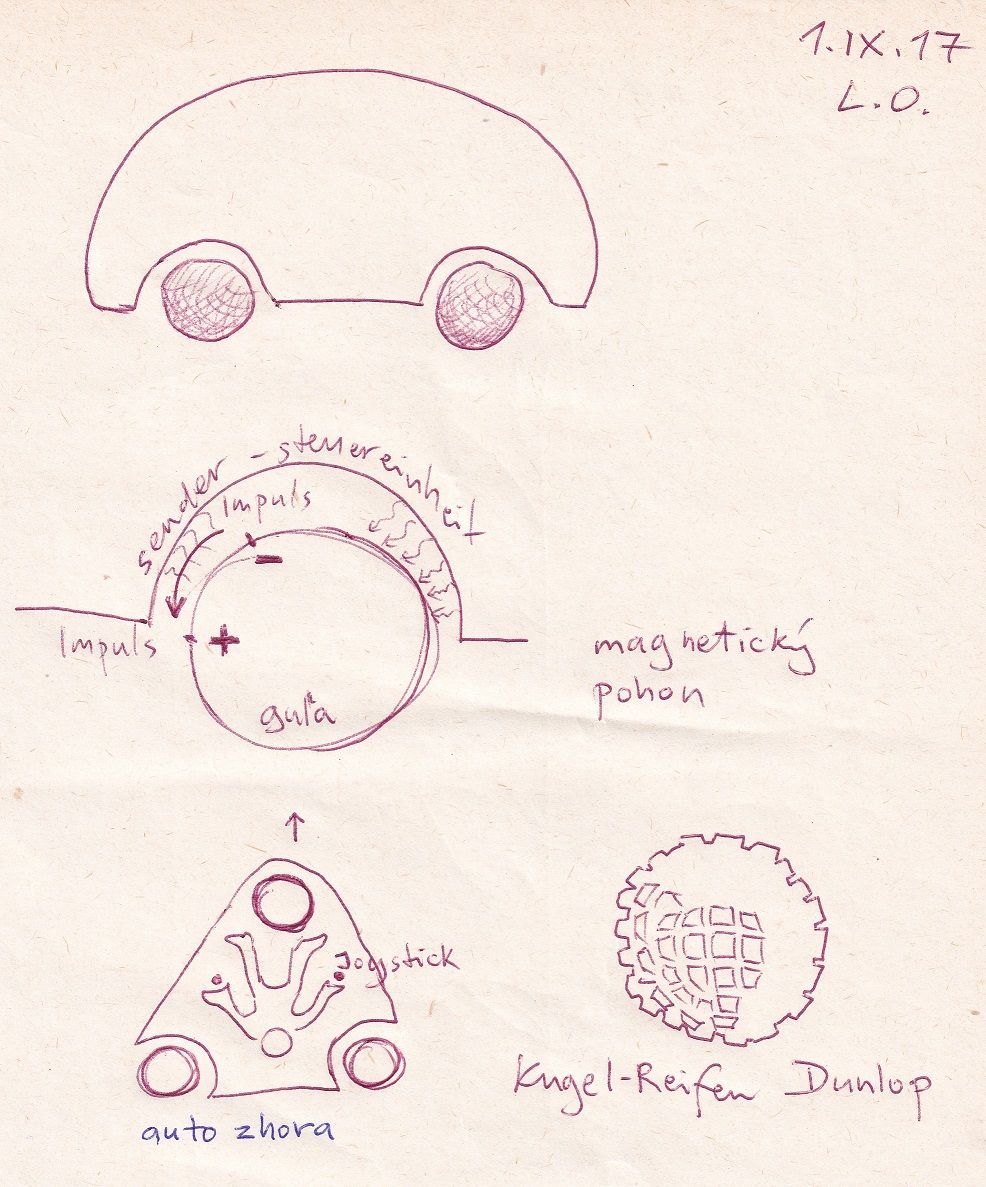 1.IX.17
L.O.
sender - steuereinheit
Impuls
-
Impuls
+
guľa
magnetický
pohon
Joystick
Kugel-Reifen Dunlop
auto zhora